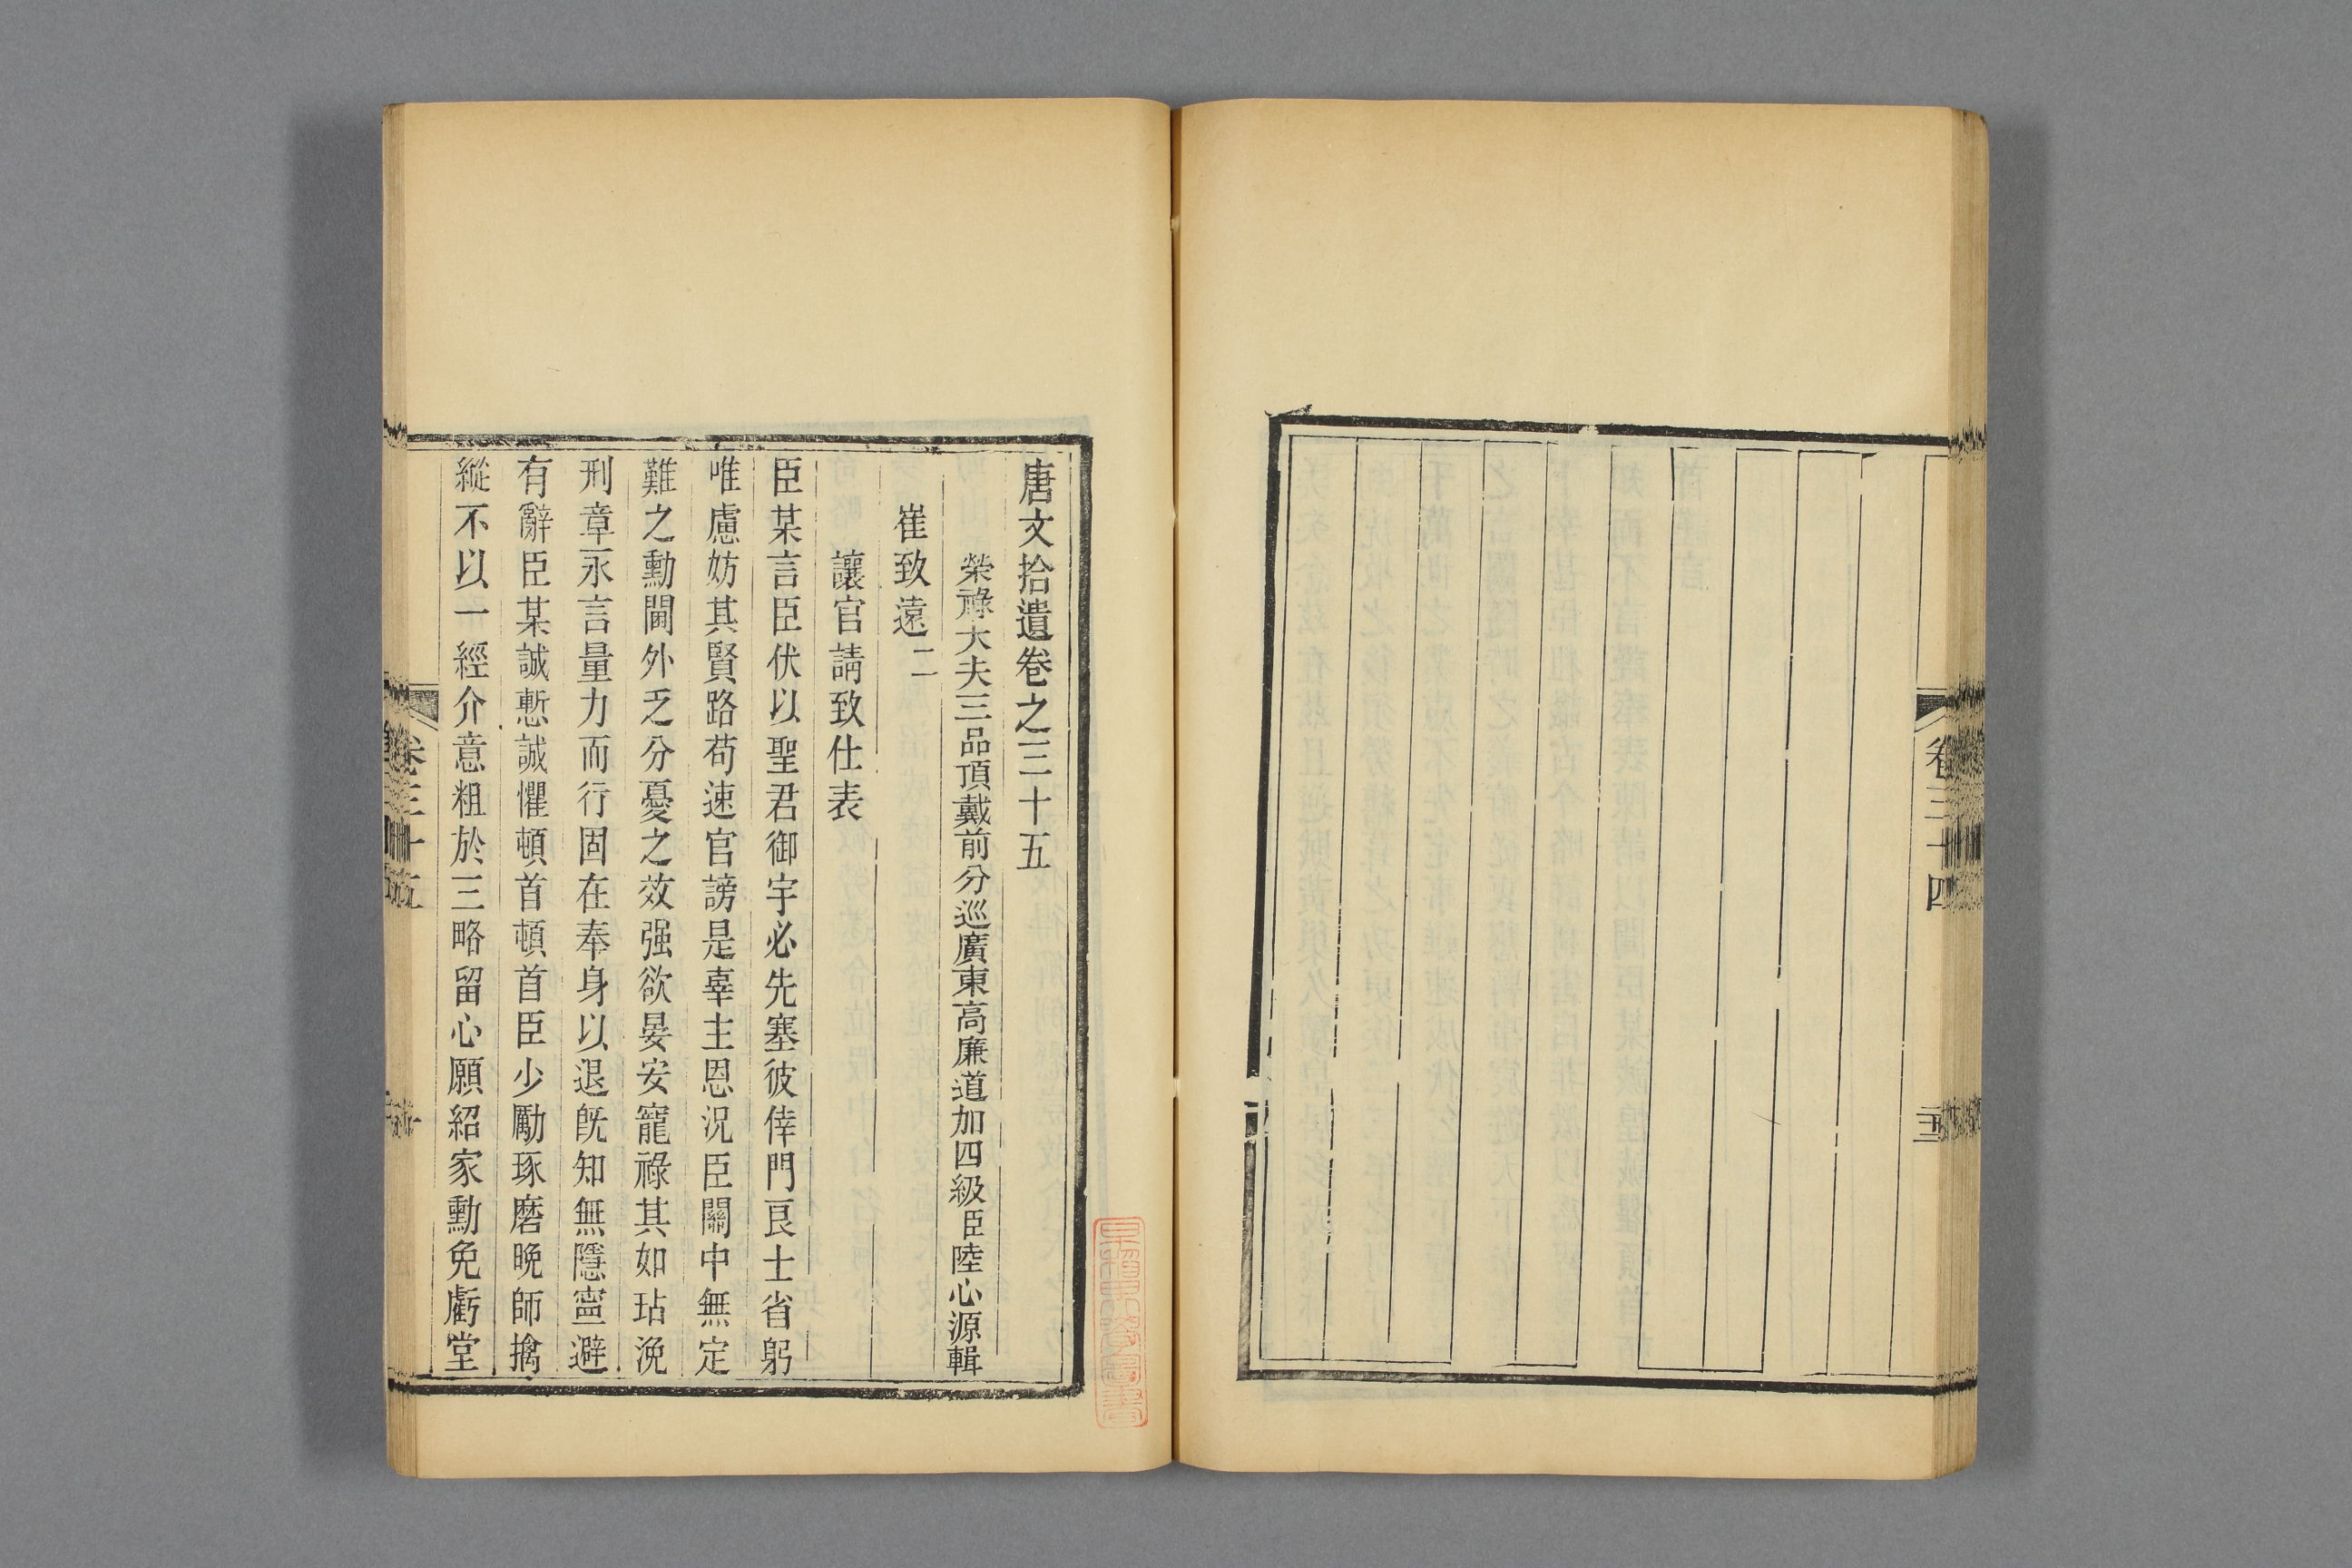 卷三十四
唐文拾遺卷之三十五
榮祿大夫三品頂戴前分巡廣東高廉道加四級臣陸心源輯
崔致遠二
讓官請致仕表
臣某言臣伏以聖君御宇必先塞彼倖門良士省躬
唯慮妨其賢路苟速官謗是辜主恩況臣關中無定
難之勳閫外乏分憂之效强欲晏安寵祿其如玷浼
刑章永言量力而行固在奉身以退旣知無隱寧避
有辭臣某誠慙誠懼頓首頓首臣少勵琢磨晚師擒
縱不以一經介意粗於三略留心願紹家勳免虧堂
卷三十五